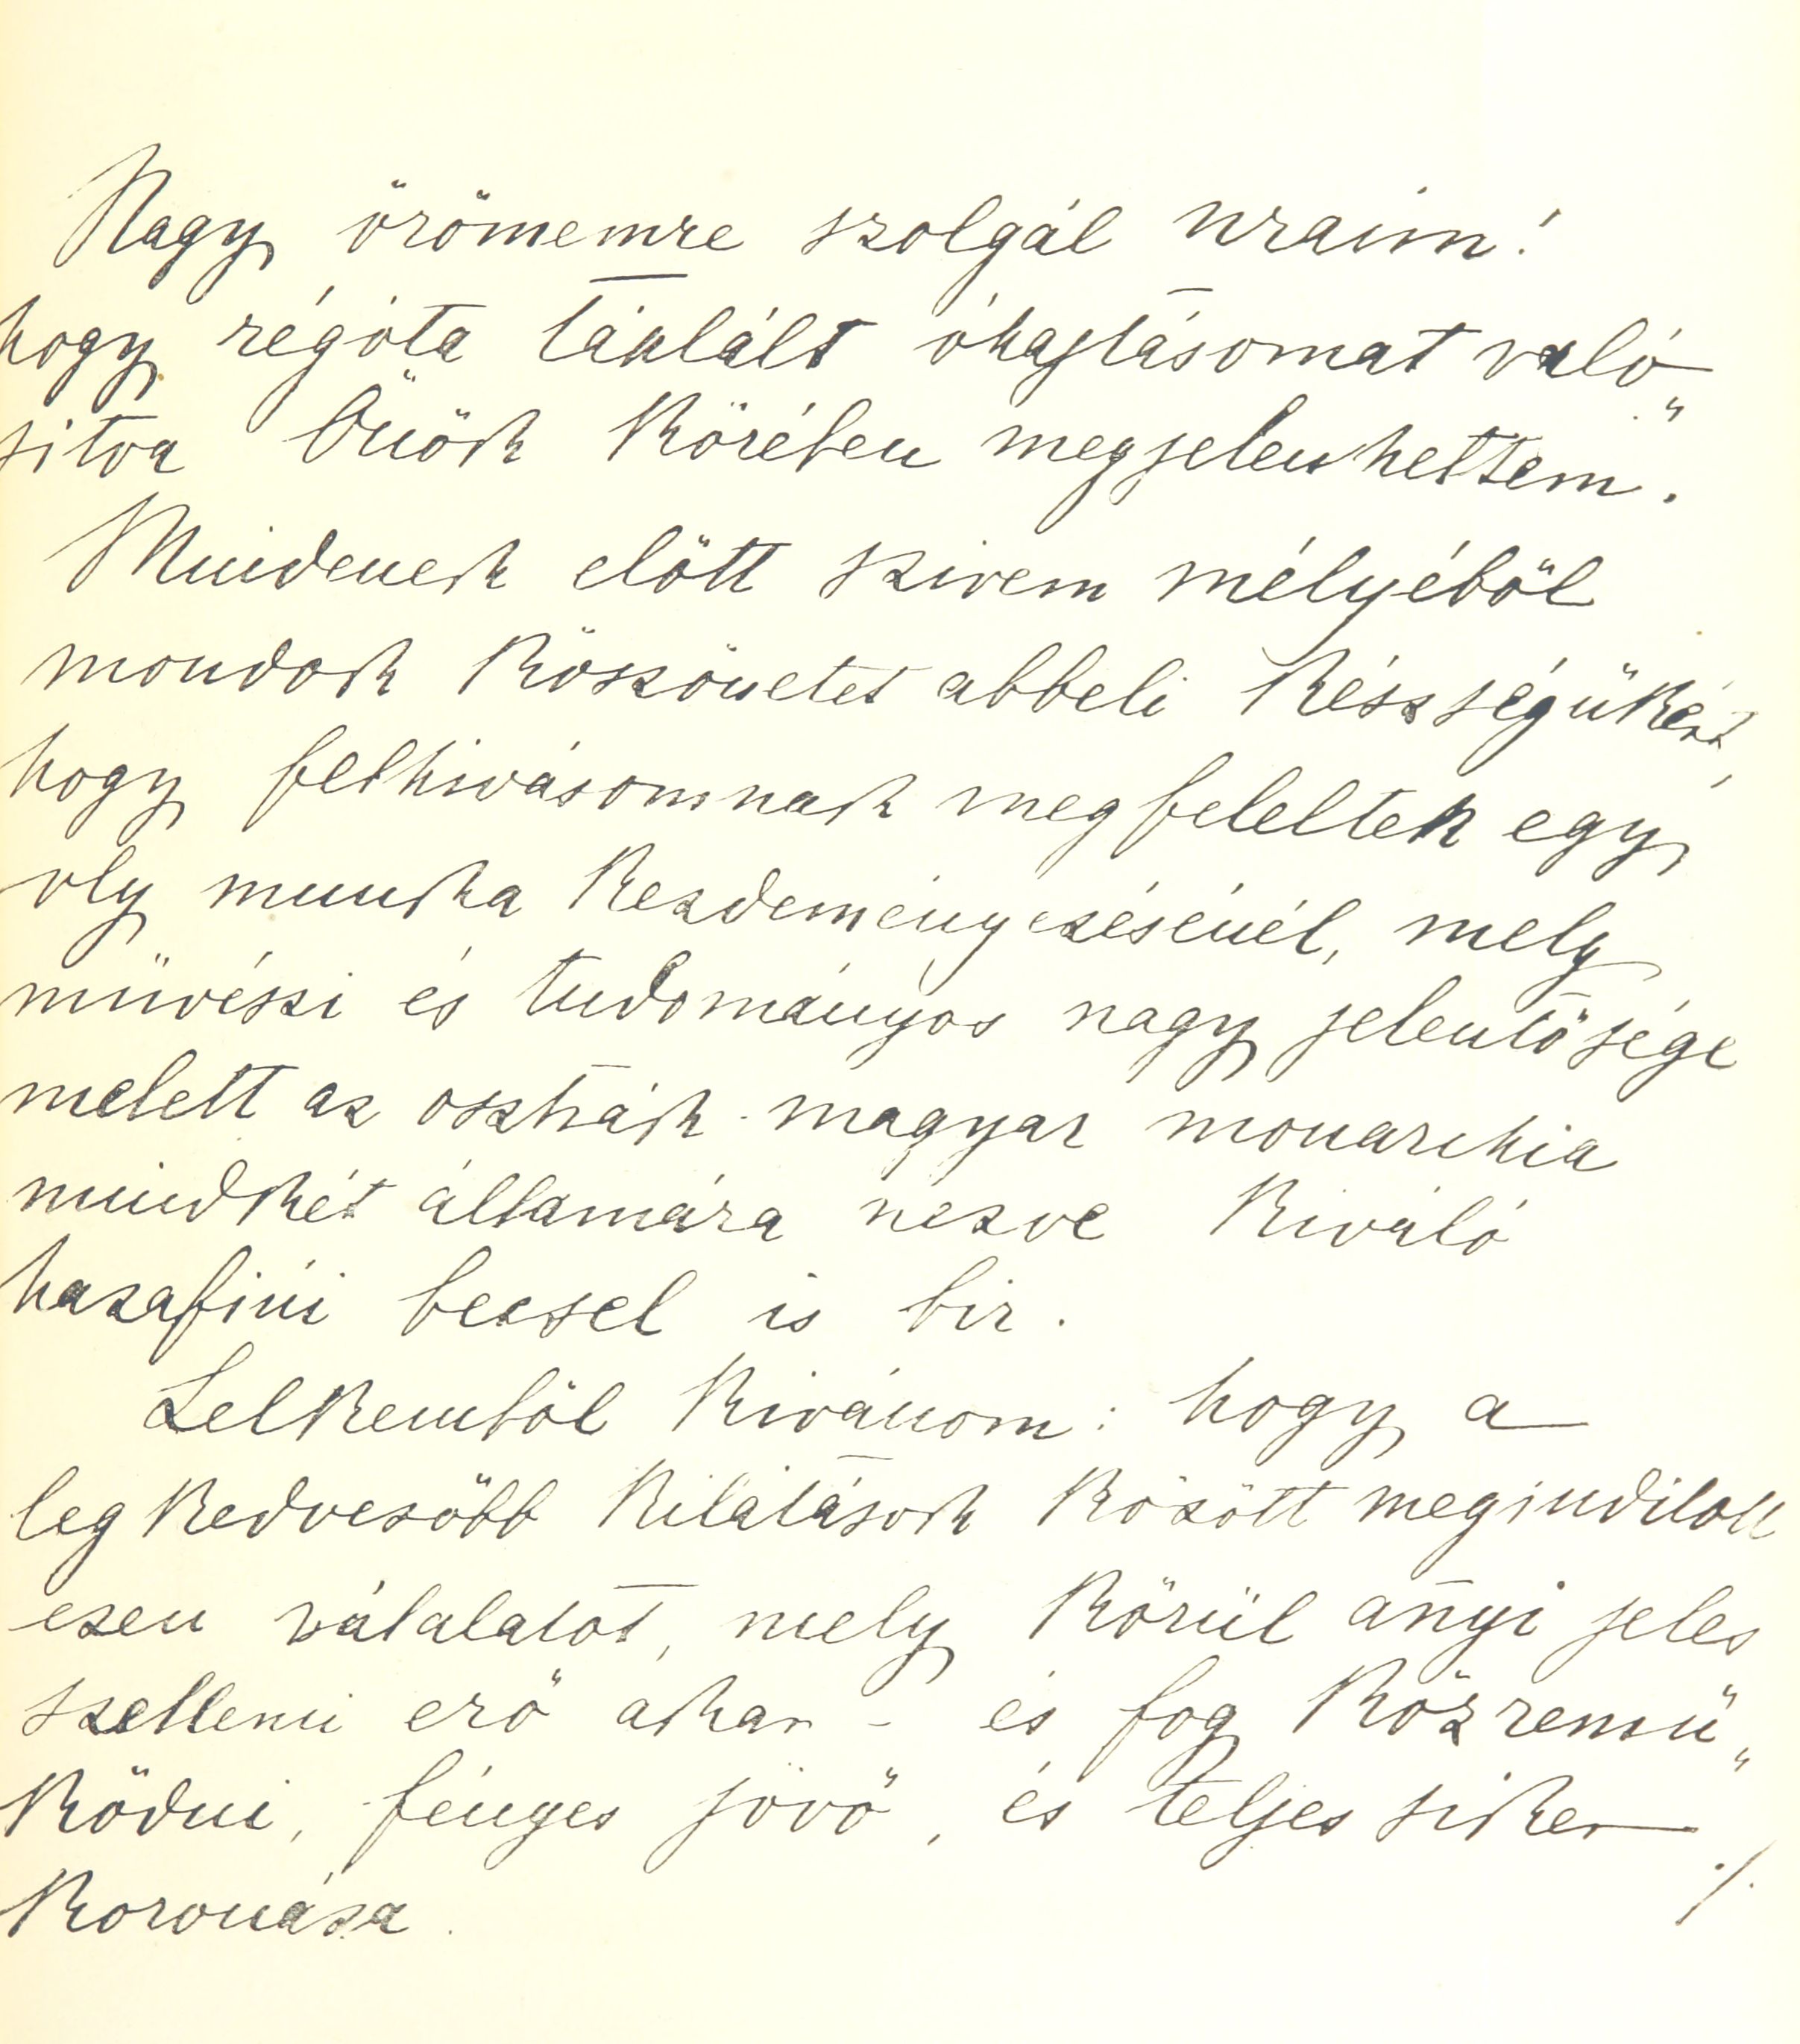 Nagy örömemre szolgál uraim!
hogy régóta táplált óhajtásomat való„
sitva Önök körében megjelenhettem.
Mindenek előtt szivem mélyéböl
mondok köszönetet abbeli készségükért,
hogy felhivásomnak megfeleltek egy
oly munka kezdeményezésénél, mely
müvészi és tudományos nagy jelentösége
melett az osztrák-magyar monarchia
mindkét államára nezve kiváló
hazafiúi becsel is bir.
Lelkemböl kivánom: hogy a
legkedvezöbb kilátások között meginditott
ezen válalatot, mely körül añyi jeles
szellemi erö akar - és fog közremü„
ködni, fényes jövö, és teljes siker
koronáza. ./.